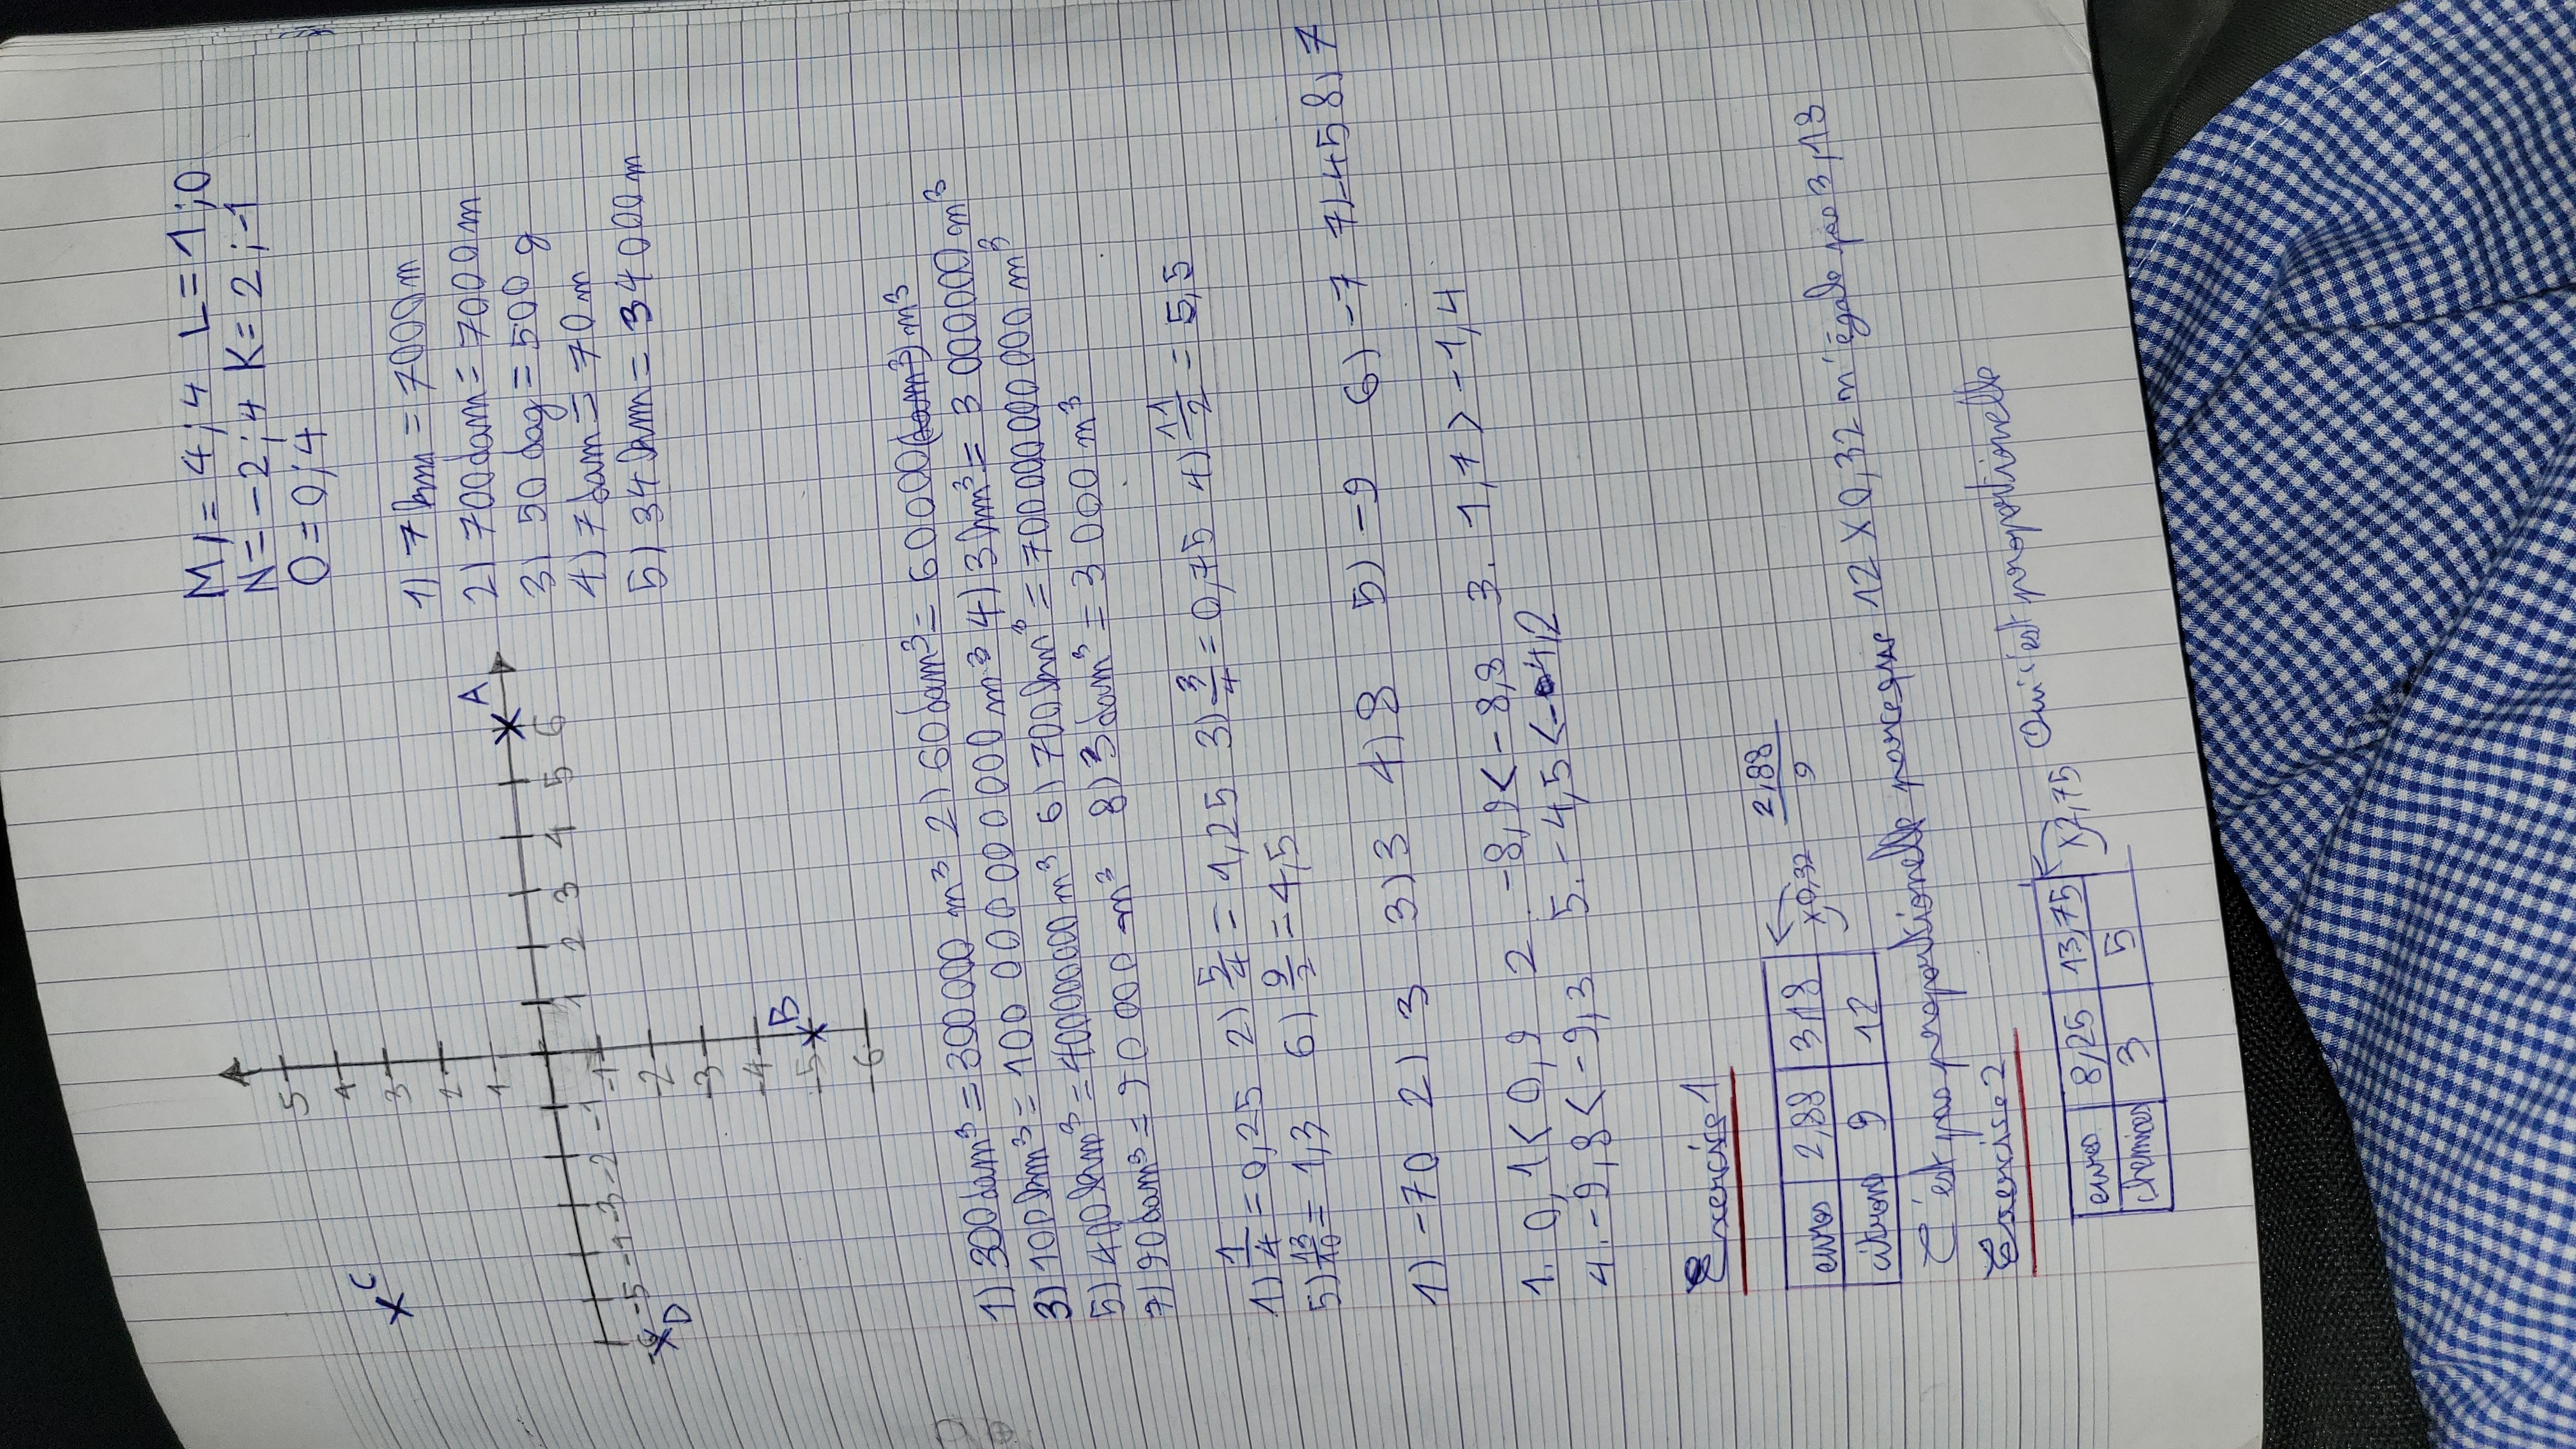 M) = 4;4 L = 1;0
N = -2;4 K = 2;-1
O = 0;4
C
5
4
3
2
1
-6 -5 -4 -3 -2 -1 1 2 3 4 5 6 A
-1
D
-2
-3
-4
-5 B
-6
1) 7 km = 7000 m
2) 700 dam = 7000 m
3) 50 dag = 500 g
4) 7 dam = 70 m
5) 34 km = 34 000 m
1) 300 dam³ = 300000 m³ 2) 60 dam³ = 60000 (dam³) m³
3) 100 km³ = 100 000 000 000 m³ 4) 3 hm³ = 3 000000 m³
5) 400 hm³ = 400000000 m³ 6) 700 km³ = 700 000 000 000 m³
7) 90 dam³ = 90 000 m³ 8) 3 dam³ = 3 000 m³
1) 1/4 = 0,25 2) 5/4 = 1,25 3) 3/4 = 0,75 4) 11/2 = 5,5
5) 13/10 = 1,3 6) 9/2 = 4,5
1) -70 2) 3 3) 3 4) 8 5) -9 6) -7 7) -45 8) 7
1. 0,1 < 0,9 2. -8,9 < -8,8 3. 1,7 > -1,4
4. -9,8 < -9,3 5. -4,5 < -4,2
Exercice 1
euros 2,88 3,18 x0,32 2,88/9
citrons 9 12
C'est pas proportionnelle parceque 12 X 0,32 n'égale pas 3,18
Exercice 2
euros 8,25 13,75 x2,75 Oui c'est proportionnelle
3 5